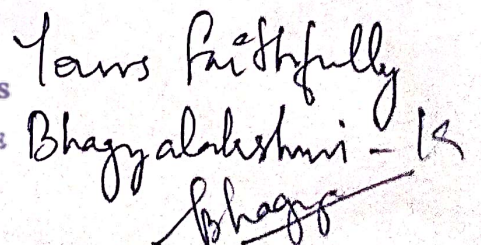 Yours faithfully
Bhagyalakshmi - K
Bhagya